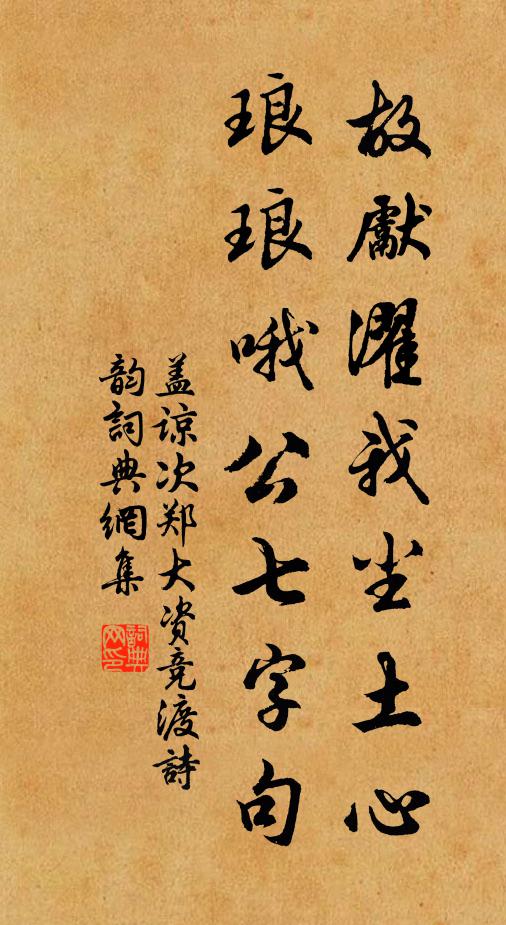 故獻濯我尘土心
琅琅哦公七字句
盖谅次郑大资竞渡詩
韵詞典網集
詞典网印